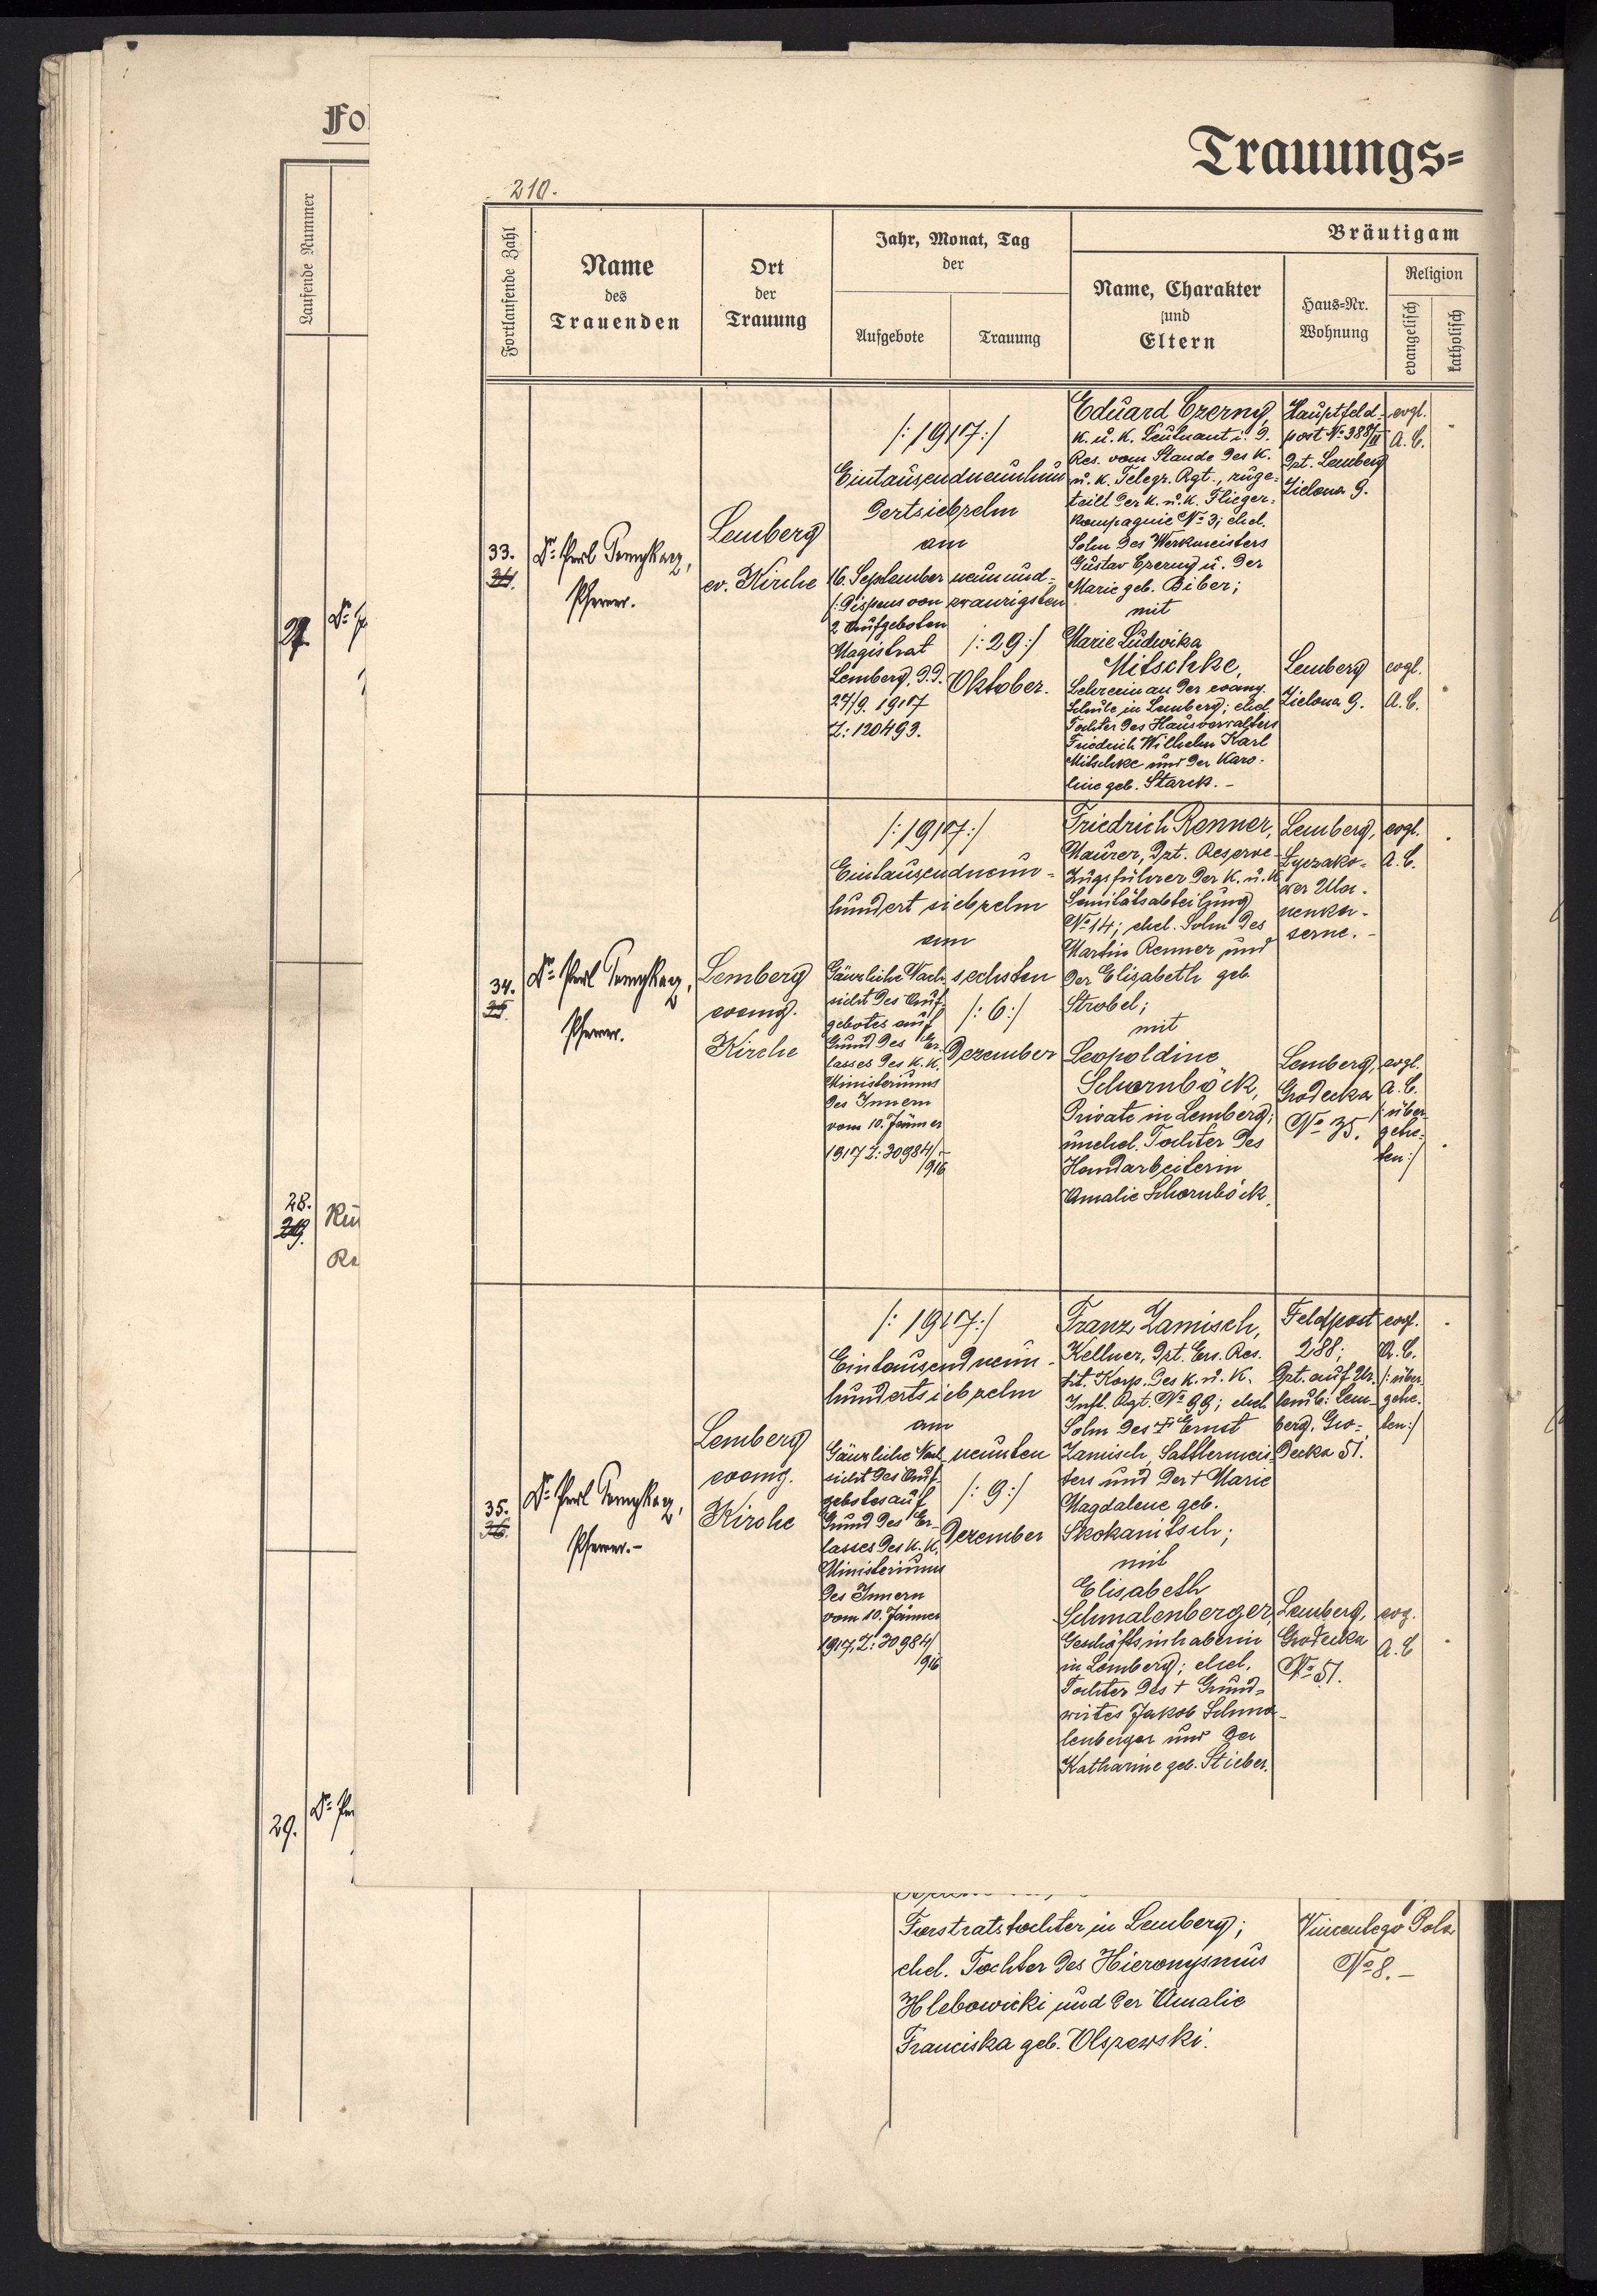 Fo
Laufende Nummer
27.
28.
29.
Rü
Re
29.
Trauungs=
210.
Fortlaufende Zahl
Name
des
Trauenden
Ort
der
Trauung
Jahr, Monat, Tag
der
Aufgebote
Trauung
Bräutigam
Name, Charakter
und
Eltern
Haus=Nr.
Wohnung
Religion
evangelisch
katholisch
33.
34.
Dr.
Pfarrer.
Lemberg
ev. Kirche
/: 1917 :/
Eintausendneunhun
dertsiebzehn
am
16. September
/: Dispens von
2 Aufgeboten
Magistrat
Lemberg, d.d.
27/9. 1917
Z: 120493.
neunund=
zwanzigsten
/: 29 :/
Oktober.
Eduard Czerny,
k. u. k. Leutnant i. d.
Res. vom Stande des k.
u. k. Telegr. Rgt., zuge=
teilt der k. u. k. Flieger=
kompagnie No 3; ehel.
Sohn des Werkmeisters
Gustav Czerny u. der
Marie geb. Biber;
mit
Marie Ludwika
Mitschke,
Lehrerin an der evang.
Schule in Lemberg; ehel.
Tochter des Hausverwalters
Friedrich Wilhelm Karl
Mitschke und der Karo=
line geb. Starck. –
Hauptfeld=
post No 388/II
Dzt. Lemberg
Zielona 9.
evgl.
A. C.
Lemberg
Zielona 9.
evgl.
A. C.
34.
35.
Dr.
Pfarrer.
Lemberg
evang.
Kirche
/: 1917 :/
Eintausendneun=
hundert siebzehn
am
Gänzliche Nach=
sicht des Auf=
gebotes auf
Grund des Er=
lasses des k. k.
Ministeriums
des Innern
vom 10. Jänner
1917 Z: 30984/
916
sechsten
/: 6 :/
Dezember
Friedrich Renner,
Maurer, dzt. Reserve=
Zugsführer der k. u. k.
Sanitätsabteilung
No 14; ehel. Sohn des
Martin Renner und
der Elisabeth geb.
Strobel;
mit
Leopoldine
Schornböck,
Private in Lemberg;
unehel. Tochter des
Handarbeiterin
Amalie Schornböck.
Lemberg,
Łyczako=
wer Ula=
nenka=
serne. –
evgl.
A. C.
Lemberg,
Grodecka
No 35.
evgl.
A. C.
/: über=
getre=
ten :/
35.
36.
Dr.
Pfarrer. –
Lemberg
evang.
Kirche
/: 1917 :/
Eintausendneun=
hundertsiebzehn
am
Gänzliche Nach=
sicht des Auf=
gebotes auf
Grund des Er=
lasses des k. k.
Ministeriums
des Innern
vom 10. Jänner
1917, Z: 30984/
916
neunten
/: 9 :/
Dezember
Franz Zamisch,
Kellner, dzt. Ers. Res.
tit. Korp. des k. u. k.
Inft. Rgt. No 99; ehel.
Sohn des † Ernst
Zamisch, Sattlermeis=
ters und der † Marie
Magdalene geb.
Skokanitsch;
mit
Elisabeth
Schmalenberger,
Geschäftsinhaberin
in Lemberg; ehel.
Tochter des † Grund=
wirtes Jakob Schma=
lenberger und der
Katharine geb. Stieber.
Feldpost
288;
Dzt. auf Ur=
laub: Lem=
berg, Gro=
decka 51.
evgl.
A. C.
/: über=
getre=
ten :/
Lemberg,
Grodecka
No 51.
evg.
A. C
Forstratstochter in Lemberg;
ehel. Tochter des Hieronysmus
Hlebowicki und der Amalie
Franciska geb. Olszewski.
Pola
No 8. –